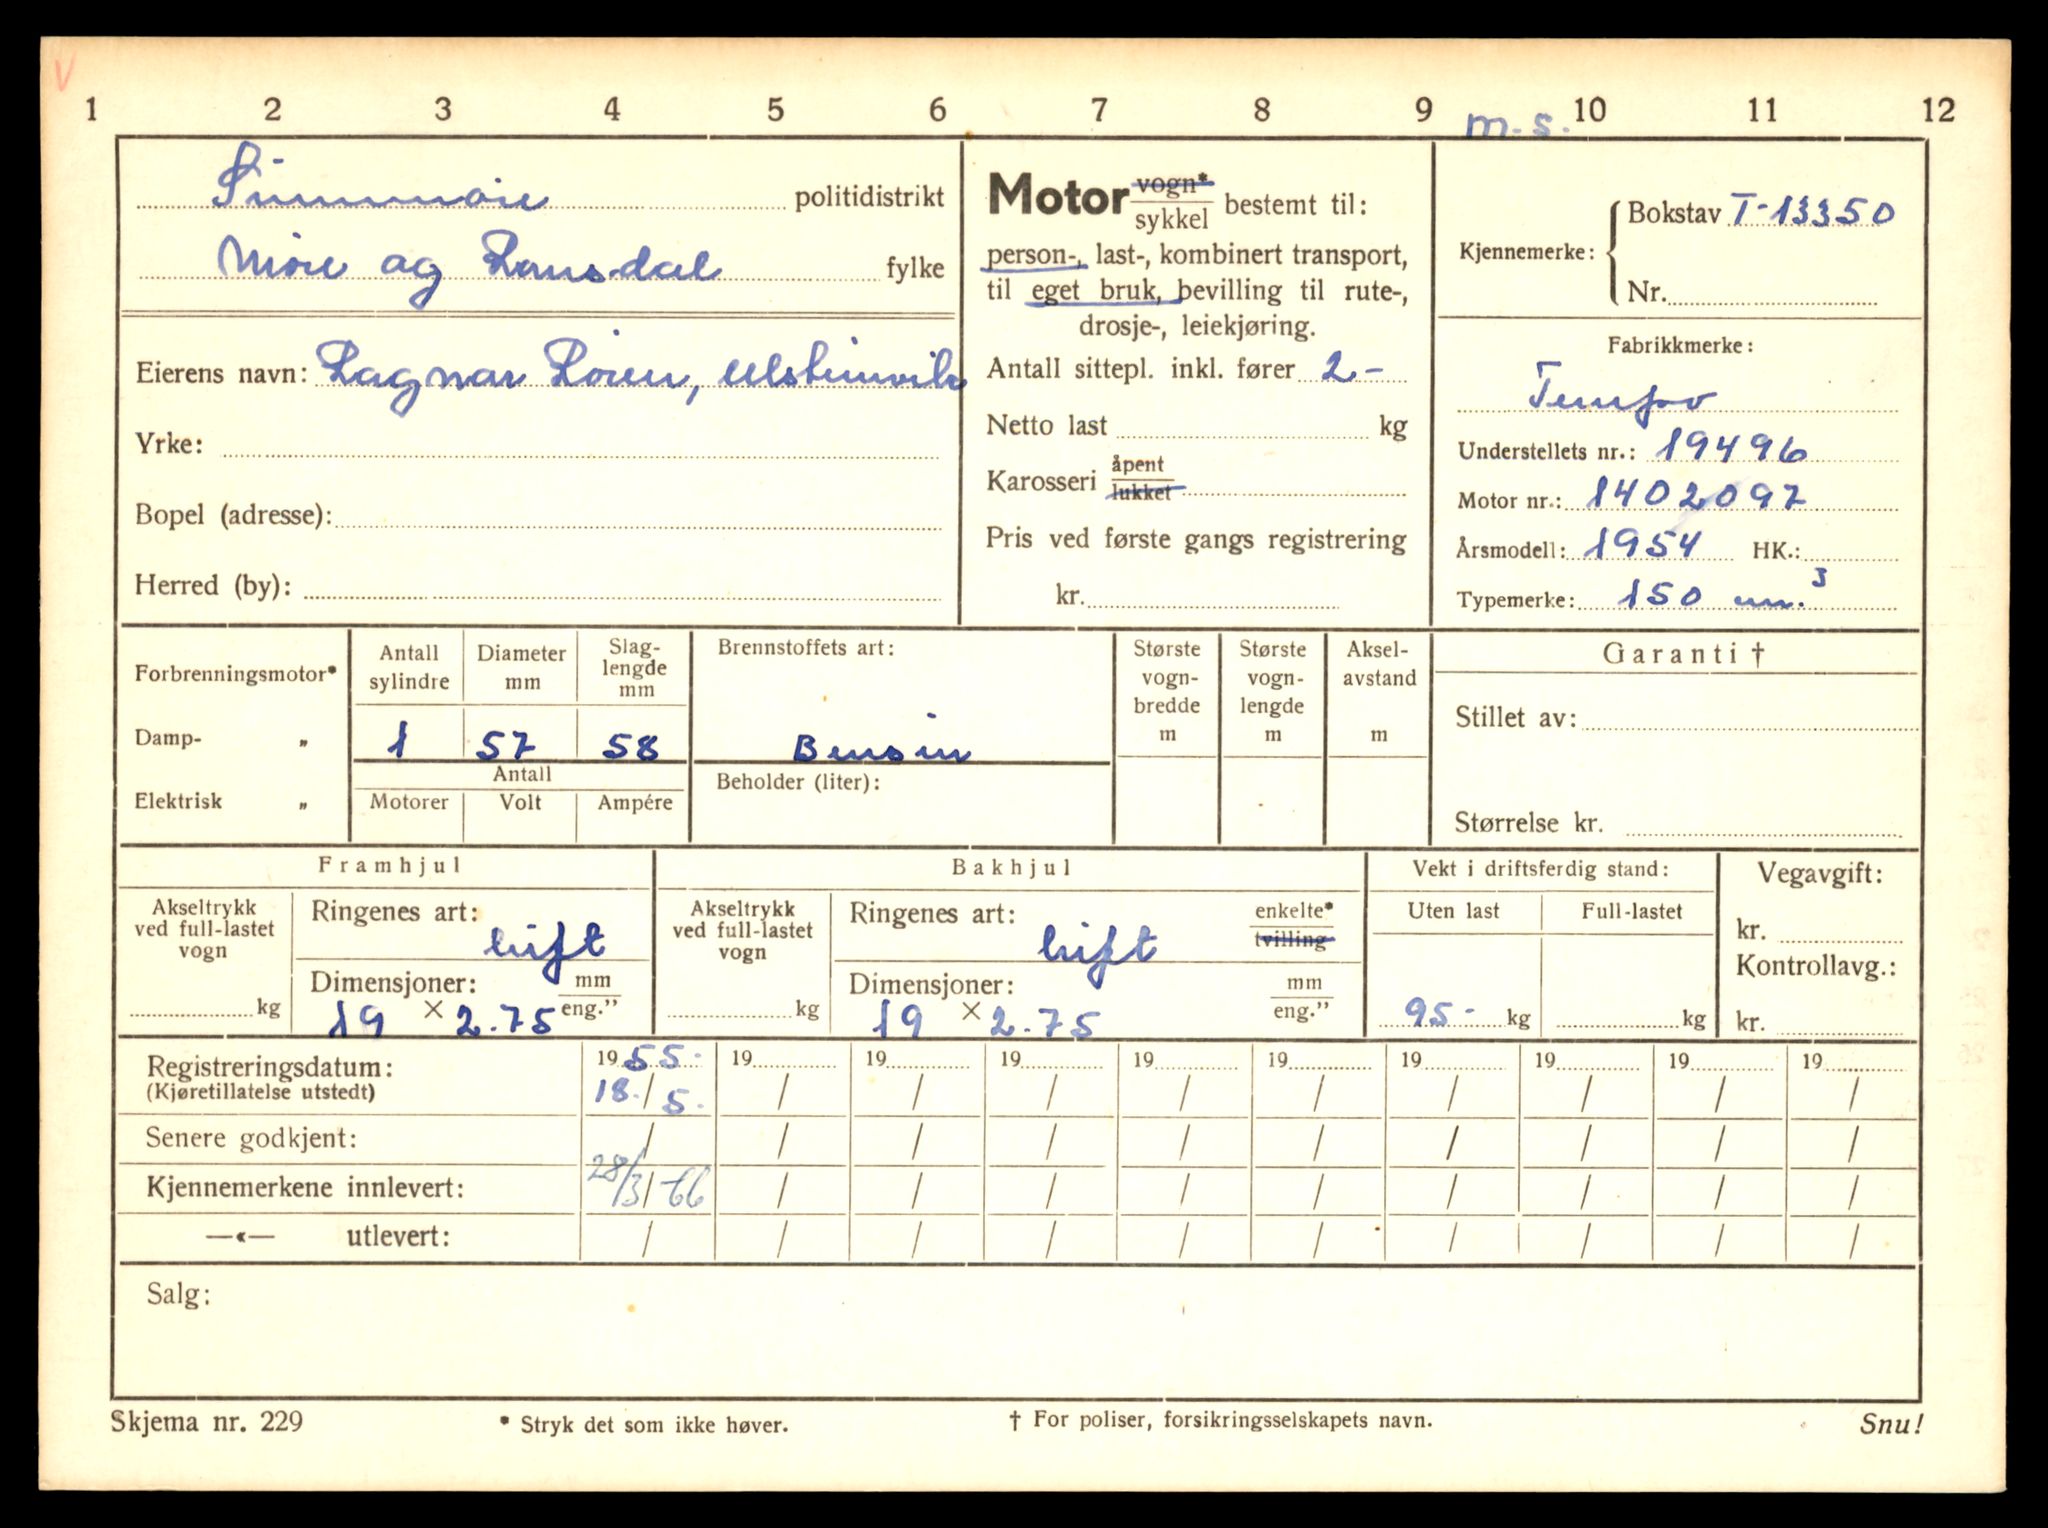 V
1 2 3 4 5 6 7 8 9 10 11 12
m.s.
Sunnmøre politidistrikt
Møre og Romsdal fylke
Eierens navn: Ragnar Röien, Ulsteinvik
Yrke:
Bopel (adresse):
Herred (by):
Motor vogn* / sykkel bestemt til:
person-, last-, kombinert transport,
til eget bruk, bevilling til rute-,
drosje-, leiekjøring.
Antall sittepl. inkl. fører 2-
Netto last kg
Karosseri åpent / lukket
Pris ved første gangs registrering
kr.
Kjennemerke: Bokstav T-13350
Nr.
Fabrikkmerke:
Tempo
Understellets nr.: 19496
Motor nr.: 1402097
Årsmodell: 1954 HK.:
Typemerke: 150 cm.³
Forbrenningsmotor*
Damp- „
Elektrisk „
Antall sylindre 1
Diameter mm 57
Slaglengde mm 58
Antall
Motorer Volt Ampére
Brennstoffets art:
Bensin
Beholder (liter):
Største vogn-bredde m
Største vogn-lengde m
Aksel-avstand m
Garanti †
Stillet av:
Størrelse kr.
Framhjul
Akseltrykk ved full-lastet vogn kg
Ringenes art: luft
Dimensjoner: mm / eng."
19 × 2.75
Bakhjul
Akseltrykk ved full-lastet vogn kg
Ringenes art: luft enkelte* / tvilling
Dimensjoner: mm / eng."
19 × 2.75
Vekt i driftsferdig stand:
Uten last Full-lastet
95- kg kg
Vegavgift:
kr.
Kontrollavg.:
kr.
Registreringsdatum: 1955- 19 19 19 19 19 19 19 19 19
(Kjøretillatelse utstedt) 18./5. / / / / / / / / /
Senere godkjent: / / / / / / / / / /
Kjennemerkene innlevert: 28/3-66 / / / / / / / / /
—«— utlevert: / / / / / / / / / /
Salg:
Skjema nr. 229
* Stryk det som ikke høver.
† For poliser, forsikringsselskapets navn.
Snu!